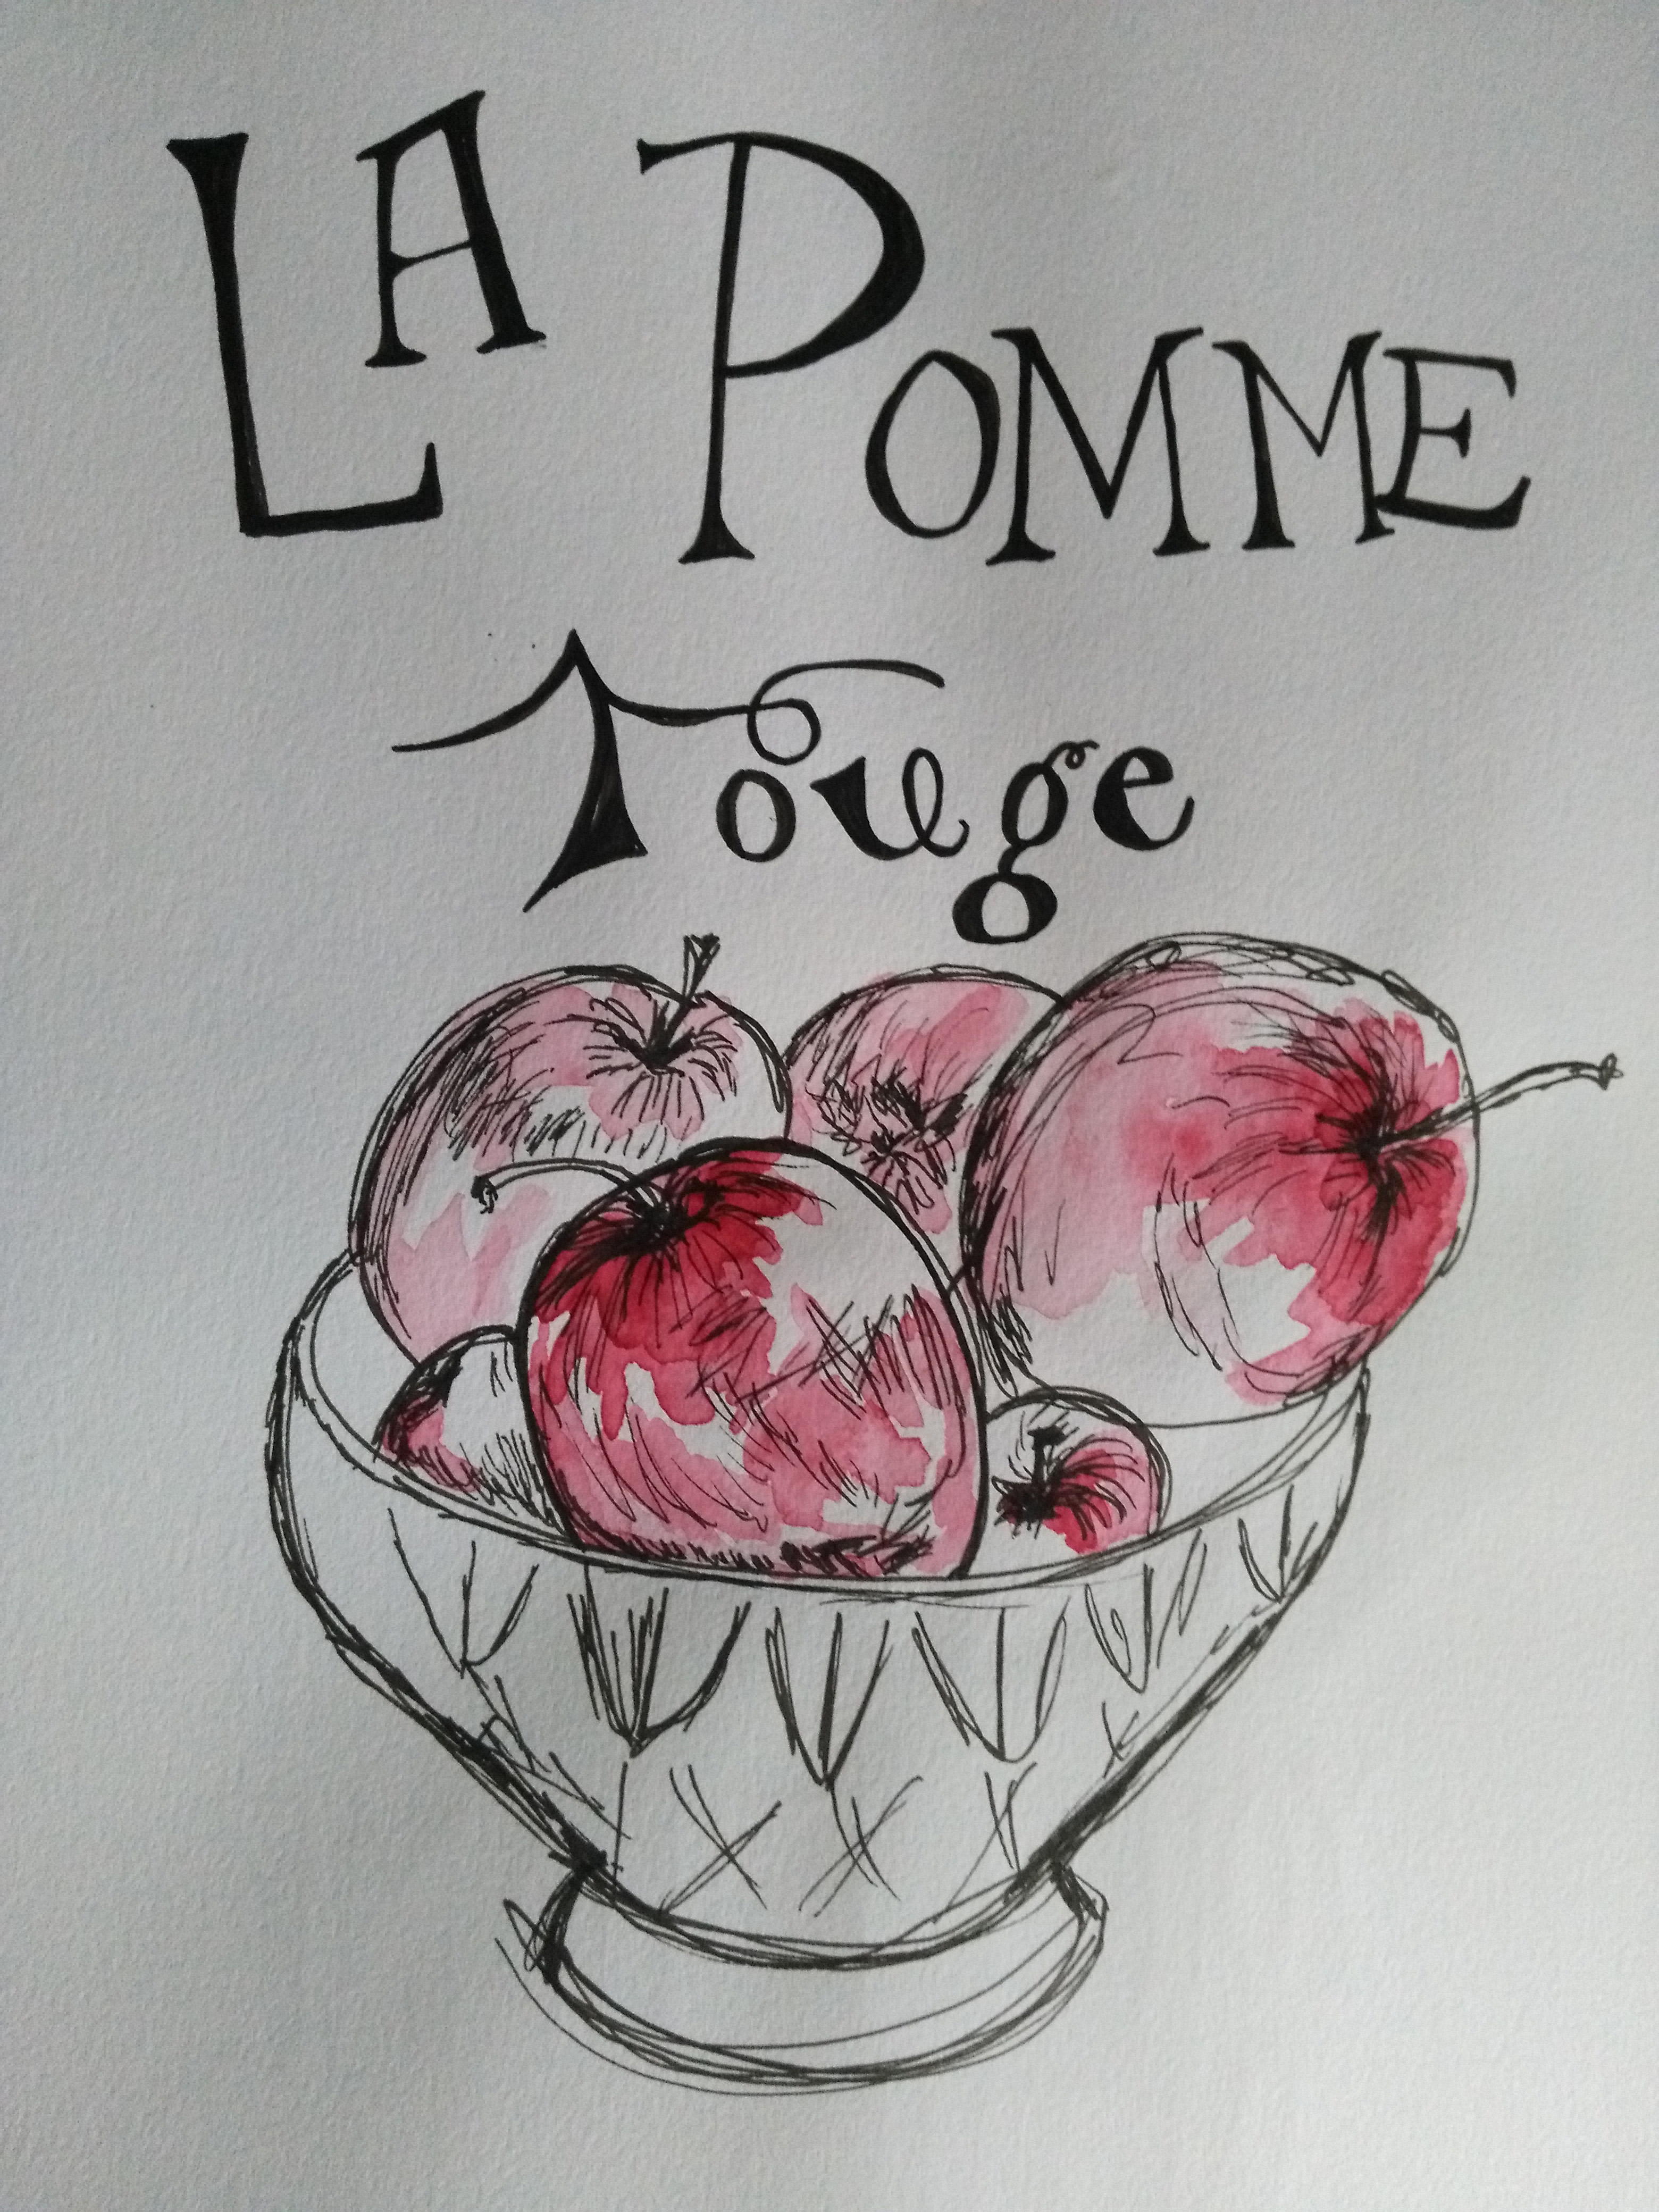 LA POMME
rouge